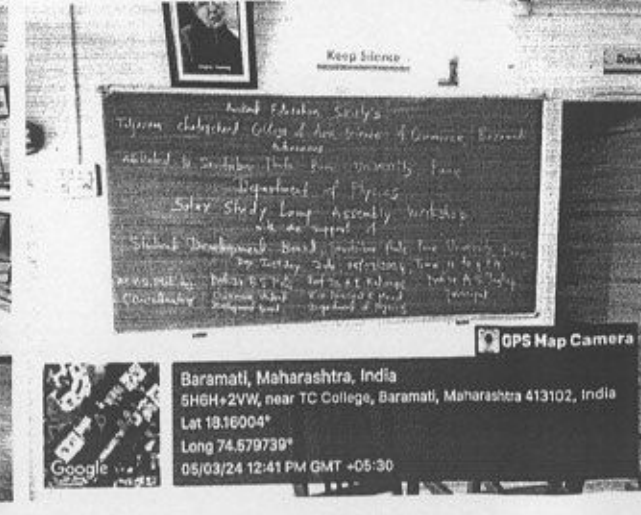 Keep Silence
Dark
Anekant Education Society's
Tuljaram Chaturchand College of Arts, Science & Commerce Baramati
Autonomous
Affiliated to Savitribai Phule Pune University Pune
Department of Physics
Solar Study Lamp Assembly Workshop
with the support of
Student Development Board Savitribai Phule Pune University, Pune
Day Tuesday Date Time
Coordinator Principal
Department of Physics
GPS Map Camera
Baramati, Maharashtra, India
5H6H+2VW, near TC College, Baramati, Maharashtra 413102, India
Lat 18.16004°
Long 74.579739°
05/03/24 12:41 PM GMT +05:30
Google